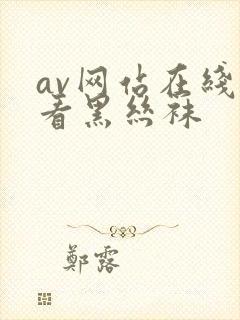 av网站在綫
看黑丝袜
鄭露